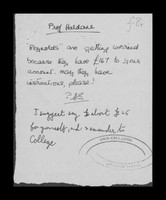 Prof Haldane
'Reynolds' are getting worried
because they have £147 to your
account. may they have
instructions, please!
I suggest say £ about £25
for yourself and remainder to
College